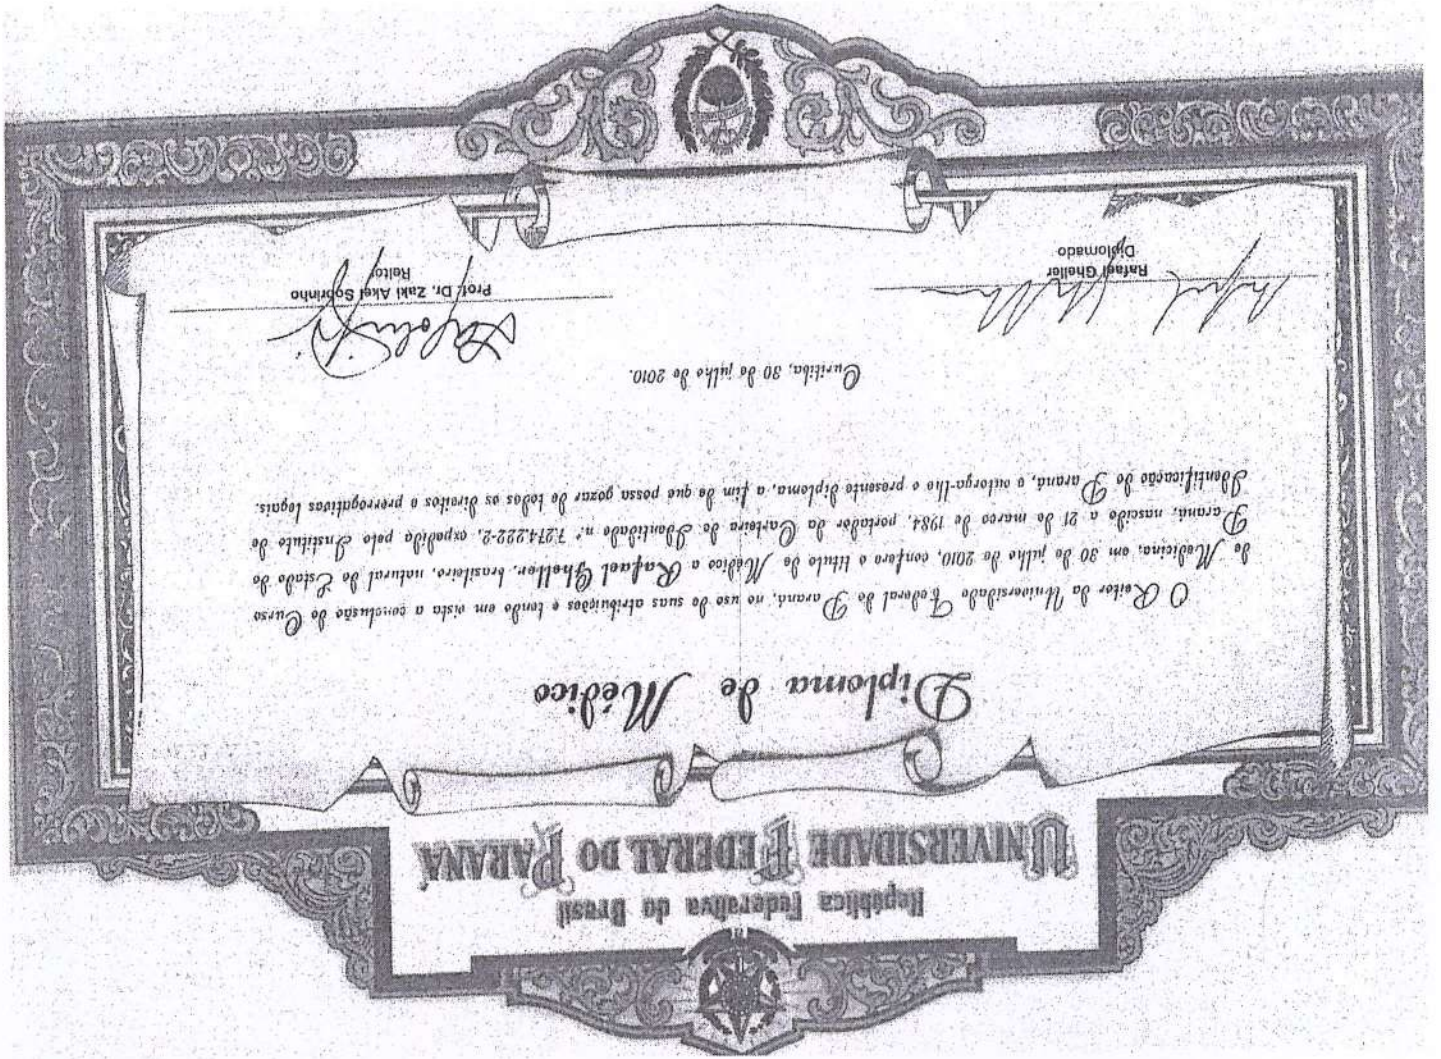 República Federativa do Brasil
UNIVERSIDADE FEDERAL DO PARANÁ
Diploma de Médico
O Reitor da Universidade Federal do Paraná, no uso de suas atribuições e tendo em vista a conclusão do Curso
de Medicina, em 30 de julho de 2010, confere o título de Médico a Rafael Gheller, brasileiro, natural do Estado do
Paraná, nascido a 21 de março de 1984, portador da Carteira de Identidade n.º 7.274.222-2, expedida pelo Instituto de
Identificação do Paraná, e outorga-lhe o presente diploma, a fim de que possa gozar de todos os direitos e prerrogativas legais.
Curitiba, 30 de julho de 2010.
Rafael Gheller
Diplomado
Prof. Dr. Zaki Akel Sobrinho
Reitor